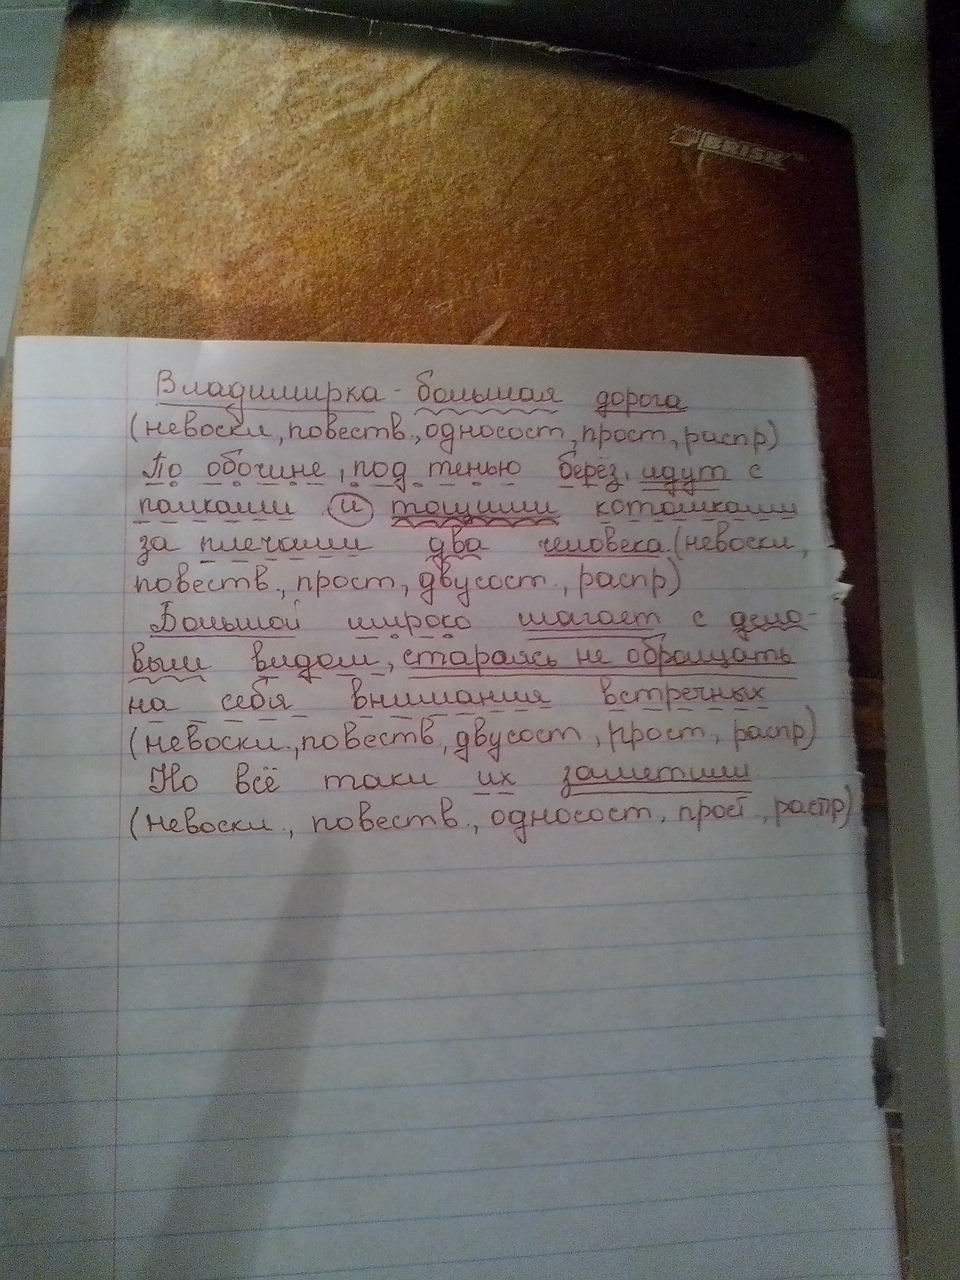 BRISK
Владимирка - большая дорога
(невоскл, повеств., односост, прост, распр)
По обочине, под тенью берёз, идут с
палками и тощими котомками
за плечами два человека. (невоскл,
повеств., прост, двусост., распр)
Большой широко шагает с дело-
вым видом, стараясь не обращать
на себя внимания встречных
(невоскл., повеств, двусост, прост, распр)
Но всё таки их заметили
(невоскл., повеств., односост, прост., распр)